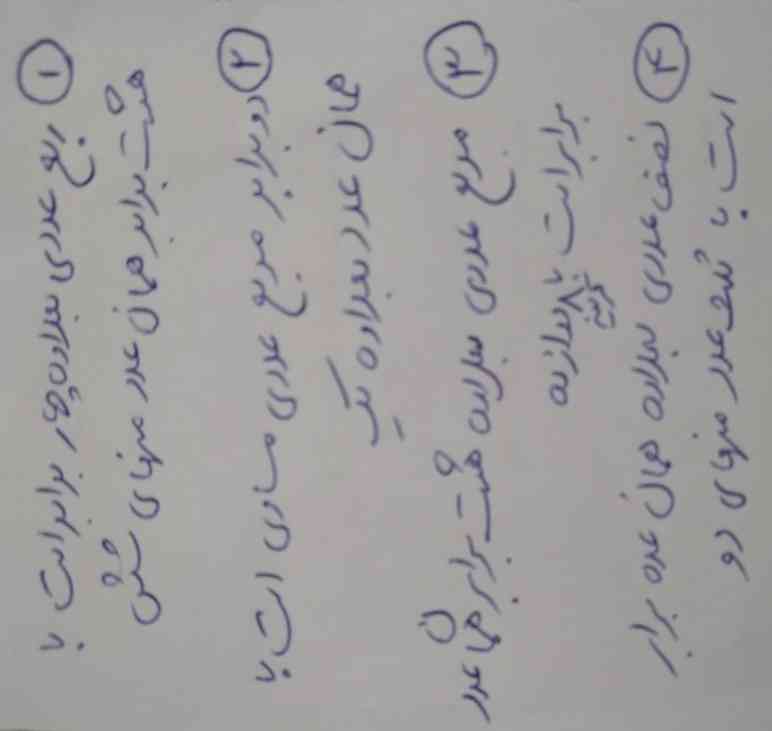 ① عددی بعلاوه برابر است با
برابر همان عدد منهای شش
② دو برابر خمس عددی است با
همان عدد بعلاوه یک
③ خمس عددی بعلاوه هشت برابر همان عدد
برابر است با دوازده
④ نصف عددی بعلاوه همان عدد برابر
است با ثلث عدد منهای دو